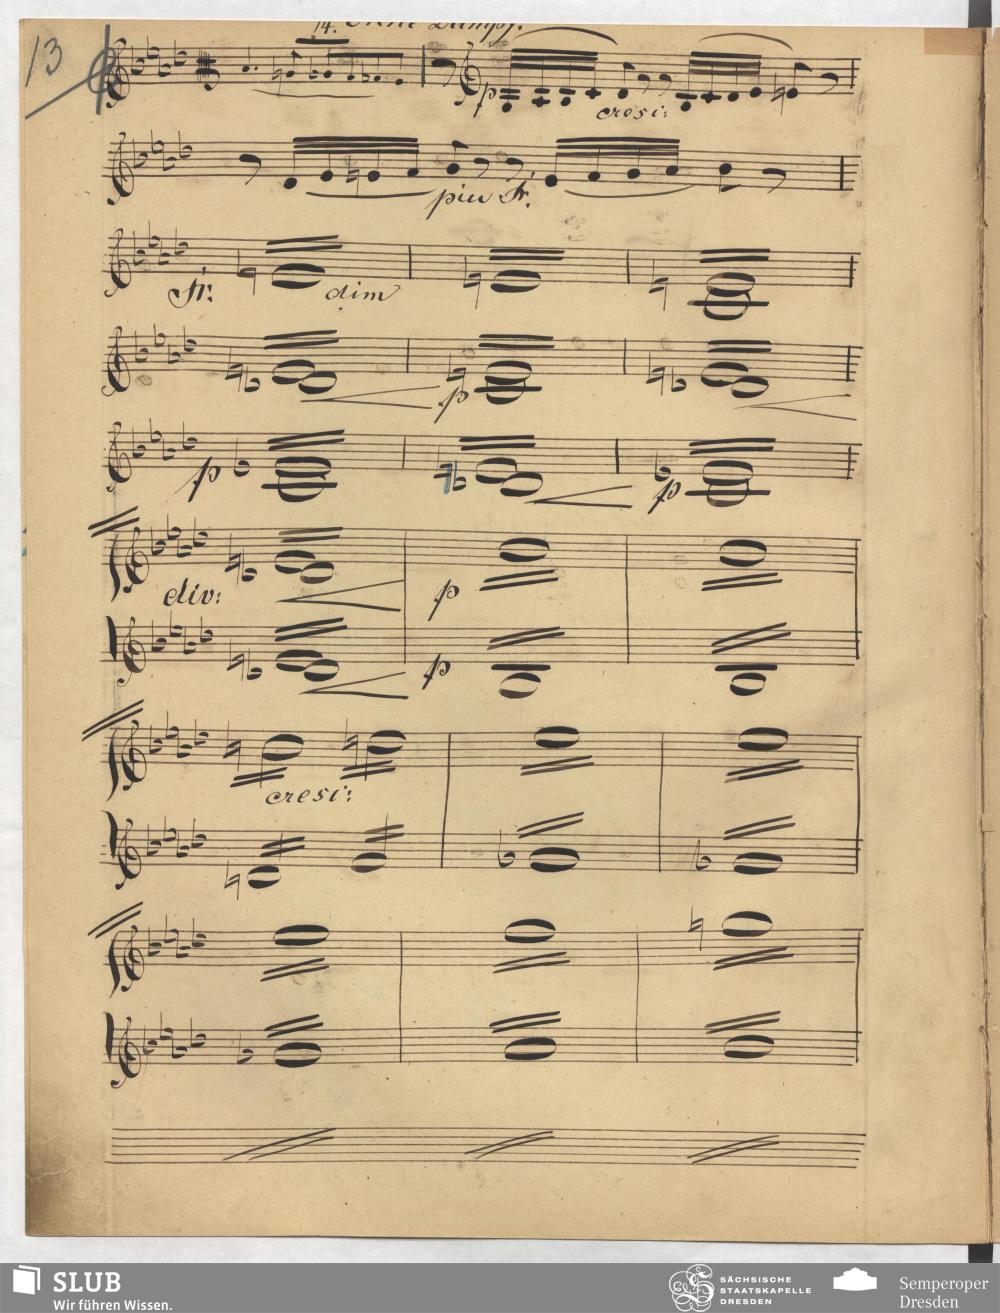 13
14. Ohne Dämpf:
p
cresc:
piu f.
f: dim
p
p
p
div:
p
p
cresc:
SLUB
Wir führen Wissen.
SÄCHSISCHE
STAATSKAPELLE
DRESDEN
Semperoper
Dresden